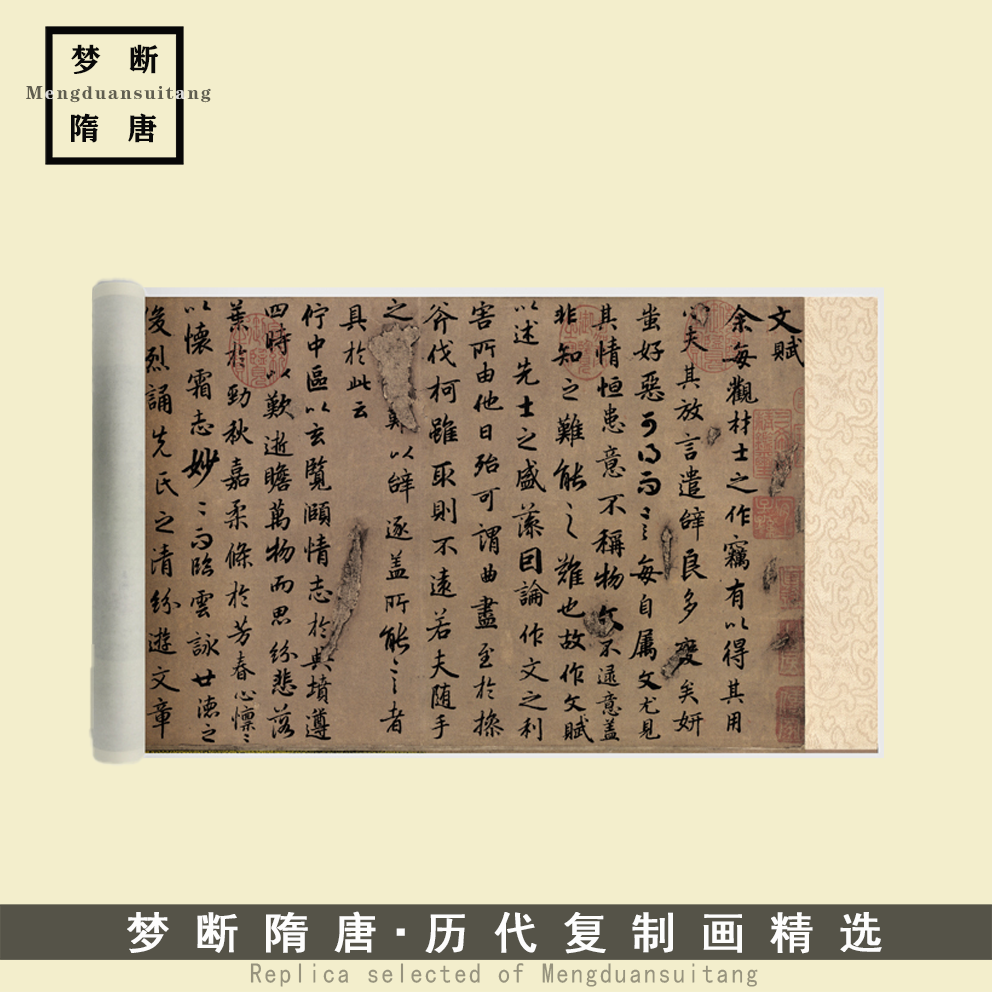 梦 断
Mengduansuitang
隋 唐
文賦
余每觀材士之作竊有以得其用
心夫其放言遣辝良多變矣妍
蚩好惡可得而言每自属文尤見
其情恒患意不稱物文不逮意盖
非知之難能之難也故作文賦
以述先士之盛藻因論作文之利
害所由他日殆可謂曲盡至於操
斧伐柯雖取則不遠若夫随手
之難以辝逐盖所能言者
具於此云
佇中區以玄覽頤情志於典墳遵
四時以歎逝瞻萬物而思紛悲落
葉於勁秋嘉柔條於芳春心懍〻
以懷霜志妙〻而臨雲詠世德之
俊烈誦先民之清紛遊文章
梦断隋唐·历代复制画精选
Replica selected of Mengduansuitang